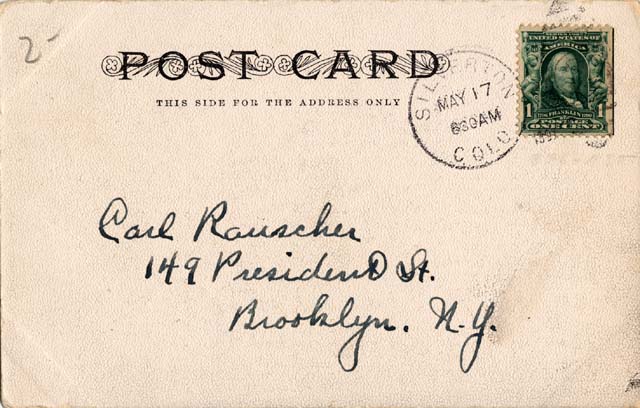 2-
POST CARD
THIS SIDE FOR THE ADDRESS ONLY
SILVERTON
MAY 17
630AM
COLO
UNITED STATES OF
AMERICA
1
FRANKLIN
POSTAGE
ONE CENT
Carl Rauscher
149 President St.
Brooklyn. N.Y.